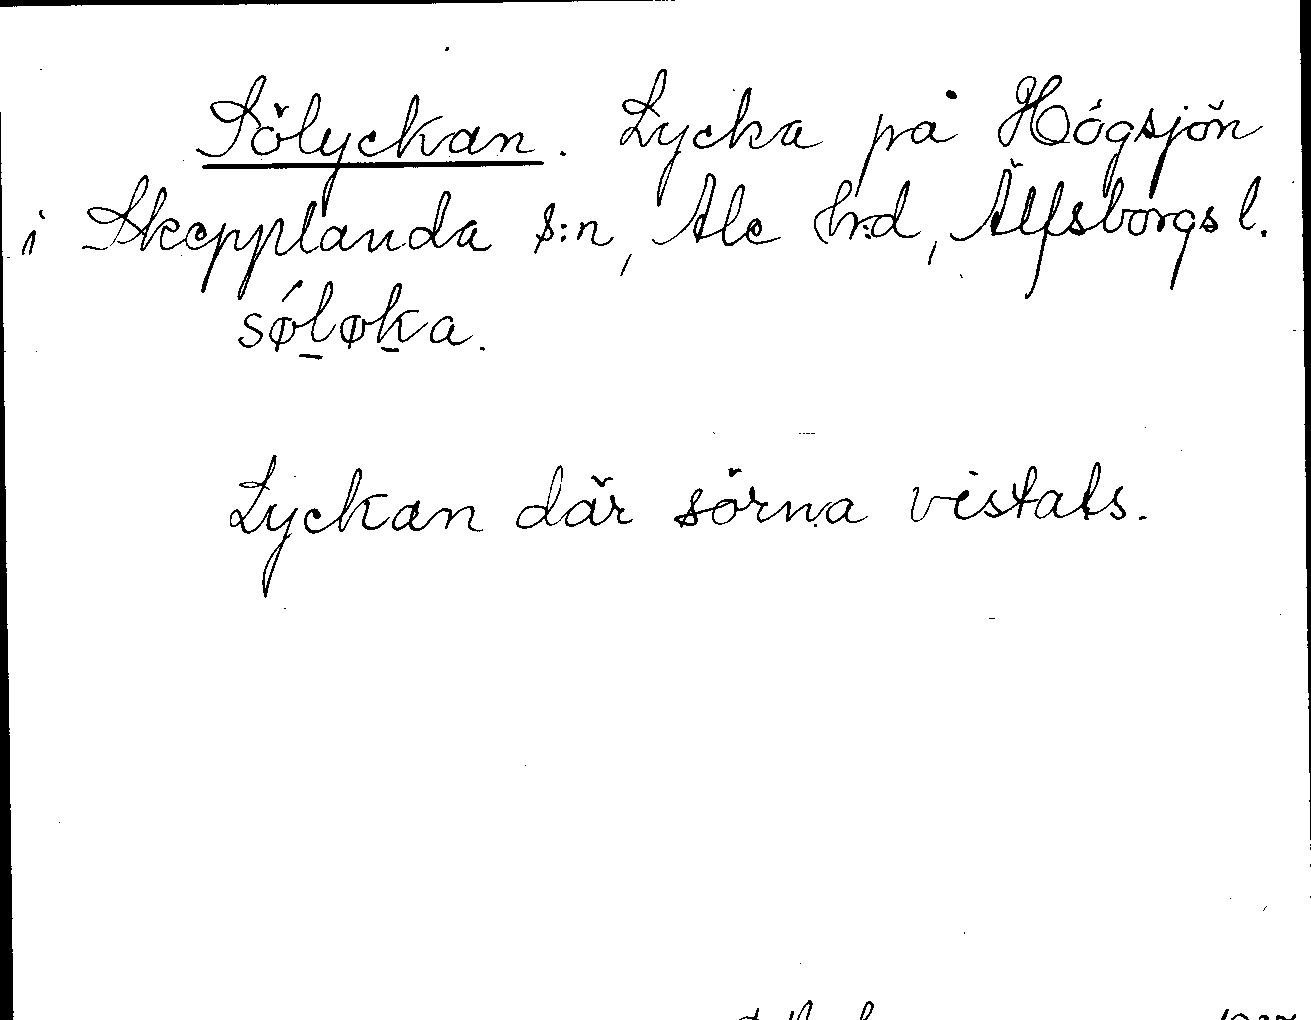 Sölyckan. Lycka på Högsjön
i Skepplanda s:n, Ale hrd, Älfsborgs l.
sǿl̠øk̠a.
Lyckan där sörna vistats.